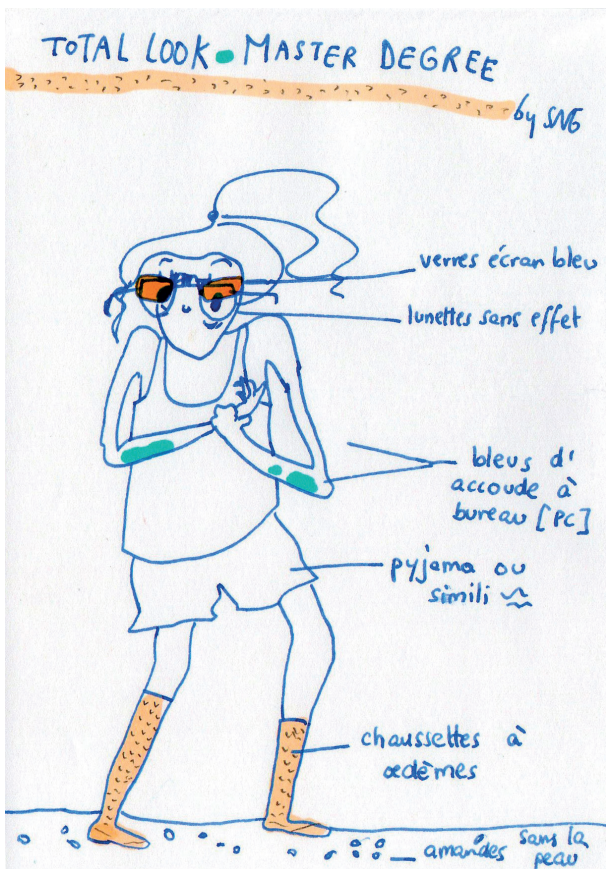 TOTAL LOOK • MASTER DEGREE
by SNG
verres écran bleu
lunettes sans effet
bleus d'
accoude à
bureau [PC]
pyjama ou
simili
chaussettes à
œdèmes
amandes sans la
peau